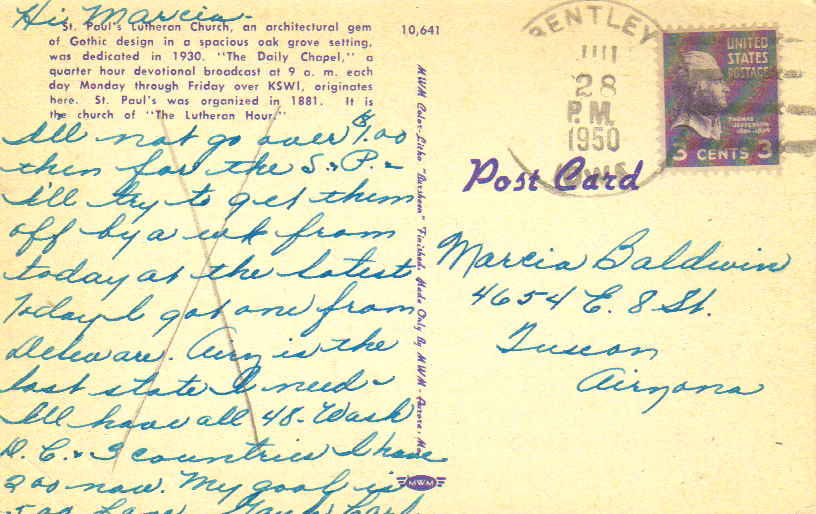 Hi Marcia-
St. Paul's Lutheran Church, an architectural gem
of Gothic design in a spacious oak grove setting,
was dedicated in 1930. "The Daily Chapel," a
quarter hour devotional broadcast at 9 a. m. each
day Monday through Friday over KSWI, originates
here. St. Paul's was organized in 1881. It is
the church of "The Lutheran Hour."
I'll not go over $1.00
then for the S. & P. -
I'll try to get them
off by a wk from
today at the latest
Today I got one from
Deleware. Airz is the
last state I need -
I'll have all 48 - Wash
D. C. & 3 countries I have
200 now. My goal is
500
10,641
MWM Color-Litho "Dursheen" Finished. Made Only By MWM, Aurora, Mo.
MWM
BENTLEY
28
P.M.
1950
IOWA
UNITED
STATES
POSTAGE
THOMAS
JEFFERSON
3 CENTS 3
Post Card
Marcia Baldwin
4654 E. 8 St.
Tuscon
Airzona